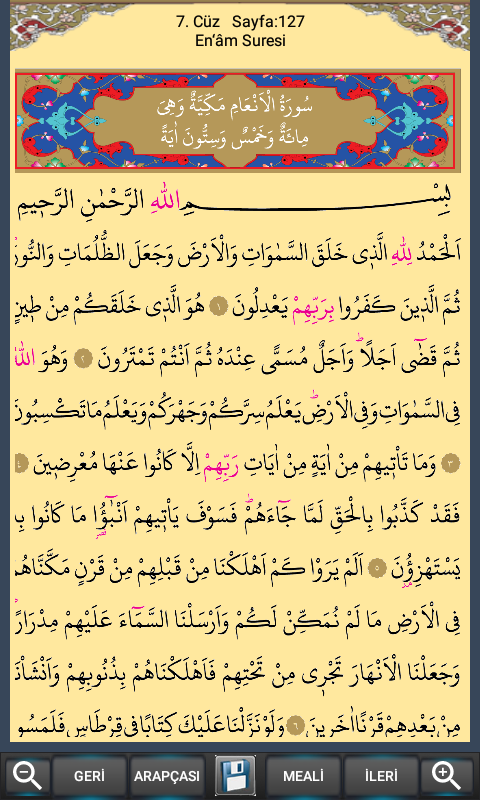 7. Cüz Sayfa:127
En'âm Suresi
سُورَةُ الْاَنْعَامِ مَكِّيَّةٌ وَهِىَ
مِائَةٌ وَخَمْسٌ وَسِتُّونَ اٰيَةً
بِسْمِ اللّٰهِ الرَّحْمٰنِ الرَّحٖيمِ
اَلْحَمْدُ لِلّٰهِ الَّذٖى خَلَقَ السَّمٰوَاتِ وَالْاَرْضَ وَجَعَلَ الظُّلُمَاتِ وَالنُّورَ
ثُمَّ الَّذٖينَ كَفَرُوا بِرَبِّهِمْ يَعْدِلُونَ ١ هُوَ الَّذٖى خَلَقَكُمْ مِنْ طٖينٍ
ثُمَّ قَضٰٓى اَجَلًاؕ وَاَجَلٌ مُسَمًّى عِنْدَهُ ثُمَّ اَنْتُمْ تَمْتَرُونَ ٢ وَهُوَ اللّٰهُ
فِى السَّمٰوَاتِ وَفِى الْاَرْضِؕ يَعْلَمُ سِرَّكُمْ وَجَهْرَكُمْ وَيَعْلَمُ مَا تَكْسِبُونَ
٣ وَمَا تَاْتٖيهِمْ مِنْ اٰيَةٍ مِنْ اٰيَاتِ رَبِّهِمْ اِلَّا كَانُوا عَنْهَا مُعْرِضٖينَ ٤
فَقَدْ كَذَّبُوا بِالْحَقِّ لَمَّا جَٓاءَهُمْؕ فَسَوْفَ يَاْتٖيهِمْ اَنْبٰٓؤُ۬ا مَا كَانُوا بِ
يَسْتَهْزِؤُ۫نَ ٥ اَلَمْ يَرَوْا كَمْ اَهْلَكْنَا مِنْ قَبْلِهِمْ مِنْ قَرْنٍ مَكَّنَّاهُمْ
فِى الْاَرْضِ مَا لَمْ نُمَكِّنْ لَكُمْ وَاَرْسَلْنَا السَّمَٓاءَ عَلَيْهِمْ مِدْرَارًا
وَجَعَلْنَا الْاَنْهَارَ تَجْرٖى مِنْ تَحْتِهِمْ فَاَهْلَكْنَاهُمْ بِذُنُوبِهِمْ وَاَنْشَاْنَا
مِنْ بَعْدِهِمْ قَرْنًا اٰخَرٖينَ ٦ وَلَوْ نَزَّلْنَا عَلَيْكَ كِتَابًا فٖى قِرْطَاسٍ فَلَمَسُو
GERİ ARAPÇASI MEALİ İLERİ